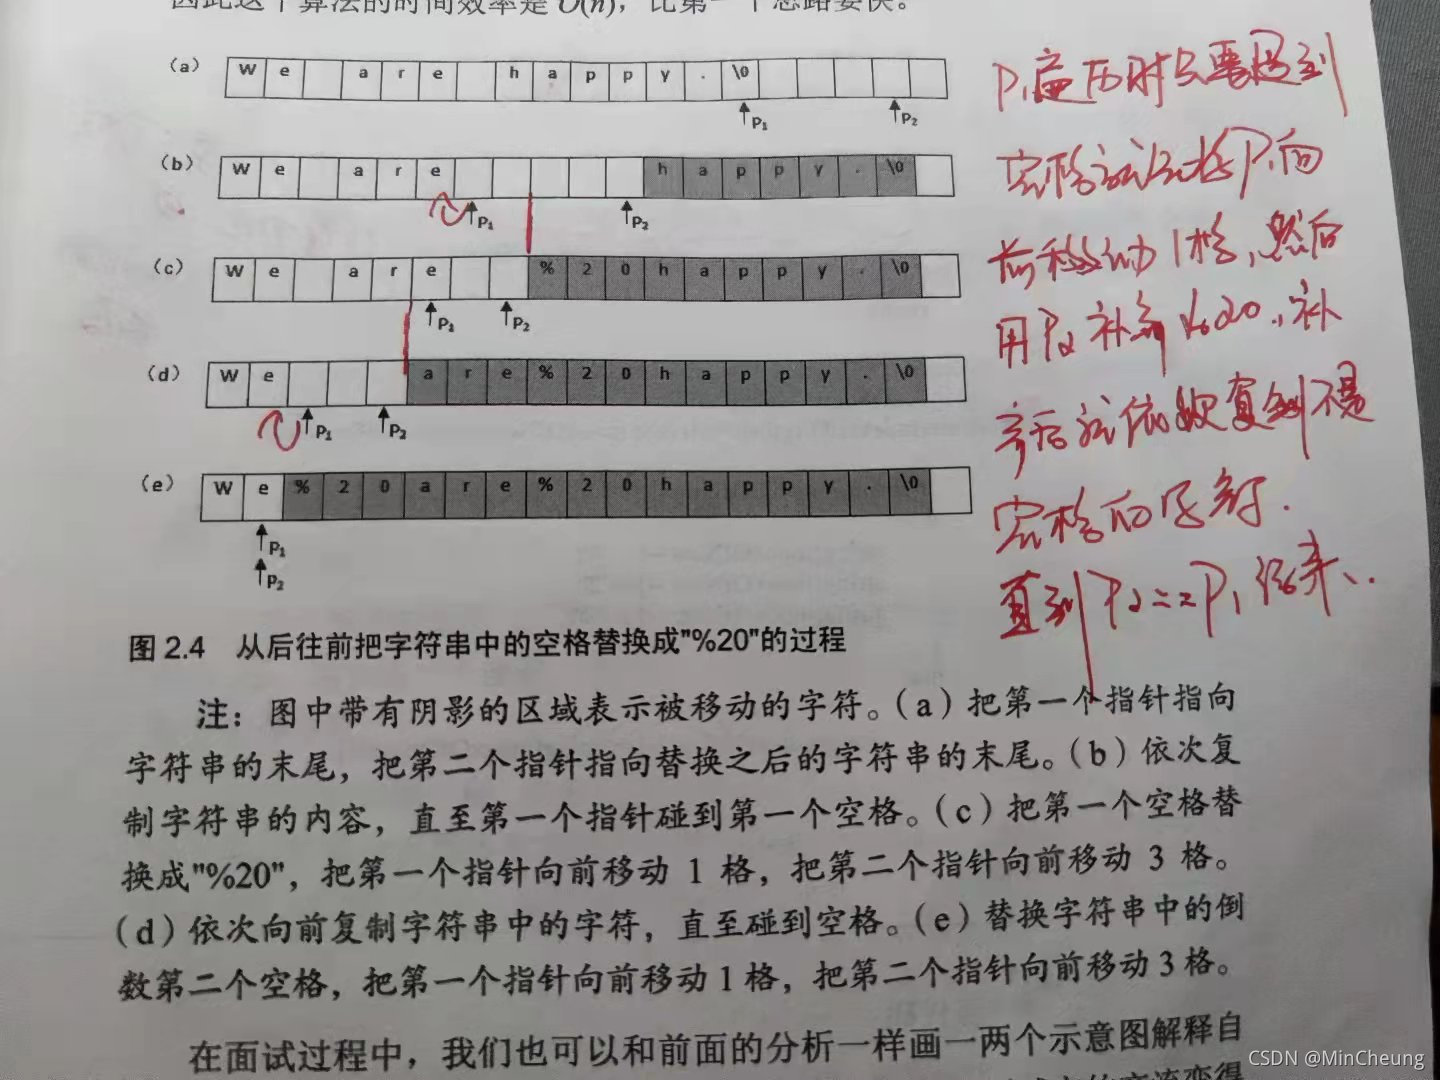 因此这个算法的时间效率是O(n)，比第一个思路要快。
(a) W e a r e h a p p y . \0
P1 P2
(b) W e a r e h a p p y . \0
P1 P2
(c) W e a r e % 2 0 h a p p y . \0
P1 P2
(d) W e a r e % 2 0 h a p p y . \0
P1 P2
(e) W e % 2 0 a r e % 2 0 h a p p y . \0
P1
P2
P1遍历时只要遇到
空格就先将P1向
前移动1格，然后
用P2补齐%20，补
齐后就依次复制不是
空格的字符.
直到P2==P1结束..
图 2.4 从后往前把字符串中的空格替换成"%20"的过程
注：图中带有阴影的区域表示被移动的字符。(a)把第一个指针指向
字符串的末尾，把第二个指针指向替换之后的字符串的末尾。(b)依次复
制字符串的内容，直至第一个指针碰到第一个空格。(c)把第一个空格替
换成"%20"，把第一个指针向前移动 1 格，把第二个指针向前移动 3 格。
(d)依次向前复制字符串中的字符，直至碰到空格。(e)替换字符串中的倒
数第二个空格，把第一个指针向前移动1格，把第二个指针向前移动3格。
在面试过程中，我们也可以和前面的分析一样画一两个示意图解释自
CSDN @MinCheung